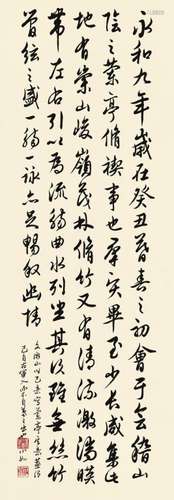 永和九年歲在癸丑暮春之初會于會稽山
陰之蘭亭脩禊事也群賢畢至少長咸集此
地有崇山峻嶺茂林脩竹又有清流激湍映
帶左右引以為流觴曲水列坐其次雖無絲竹
管弦之盛一觴一詠亦足暢敘幽情